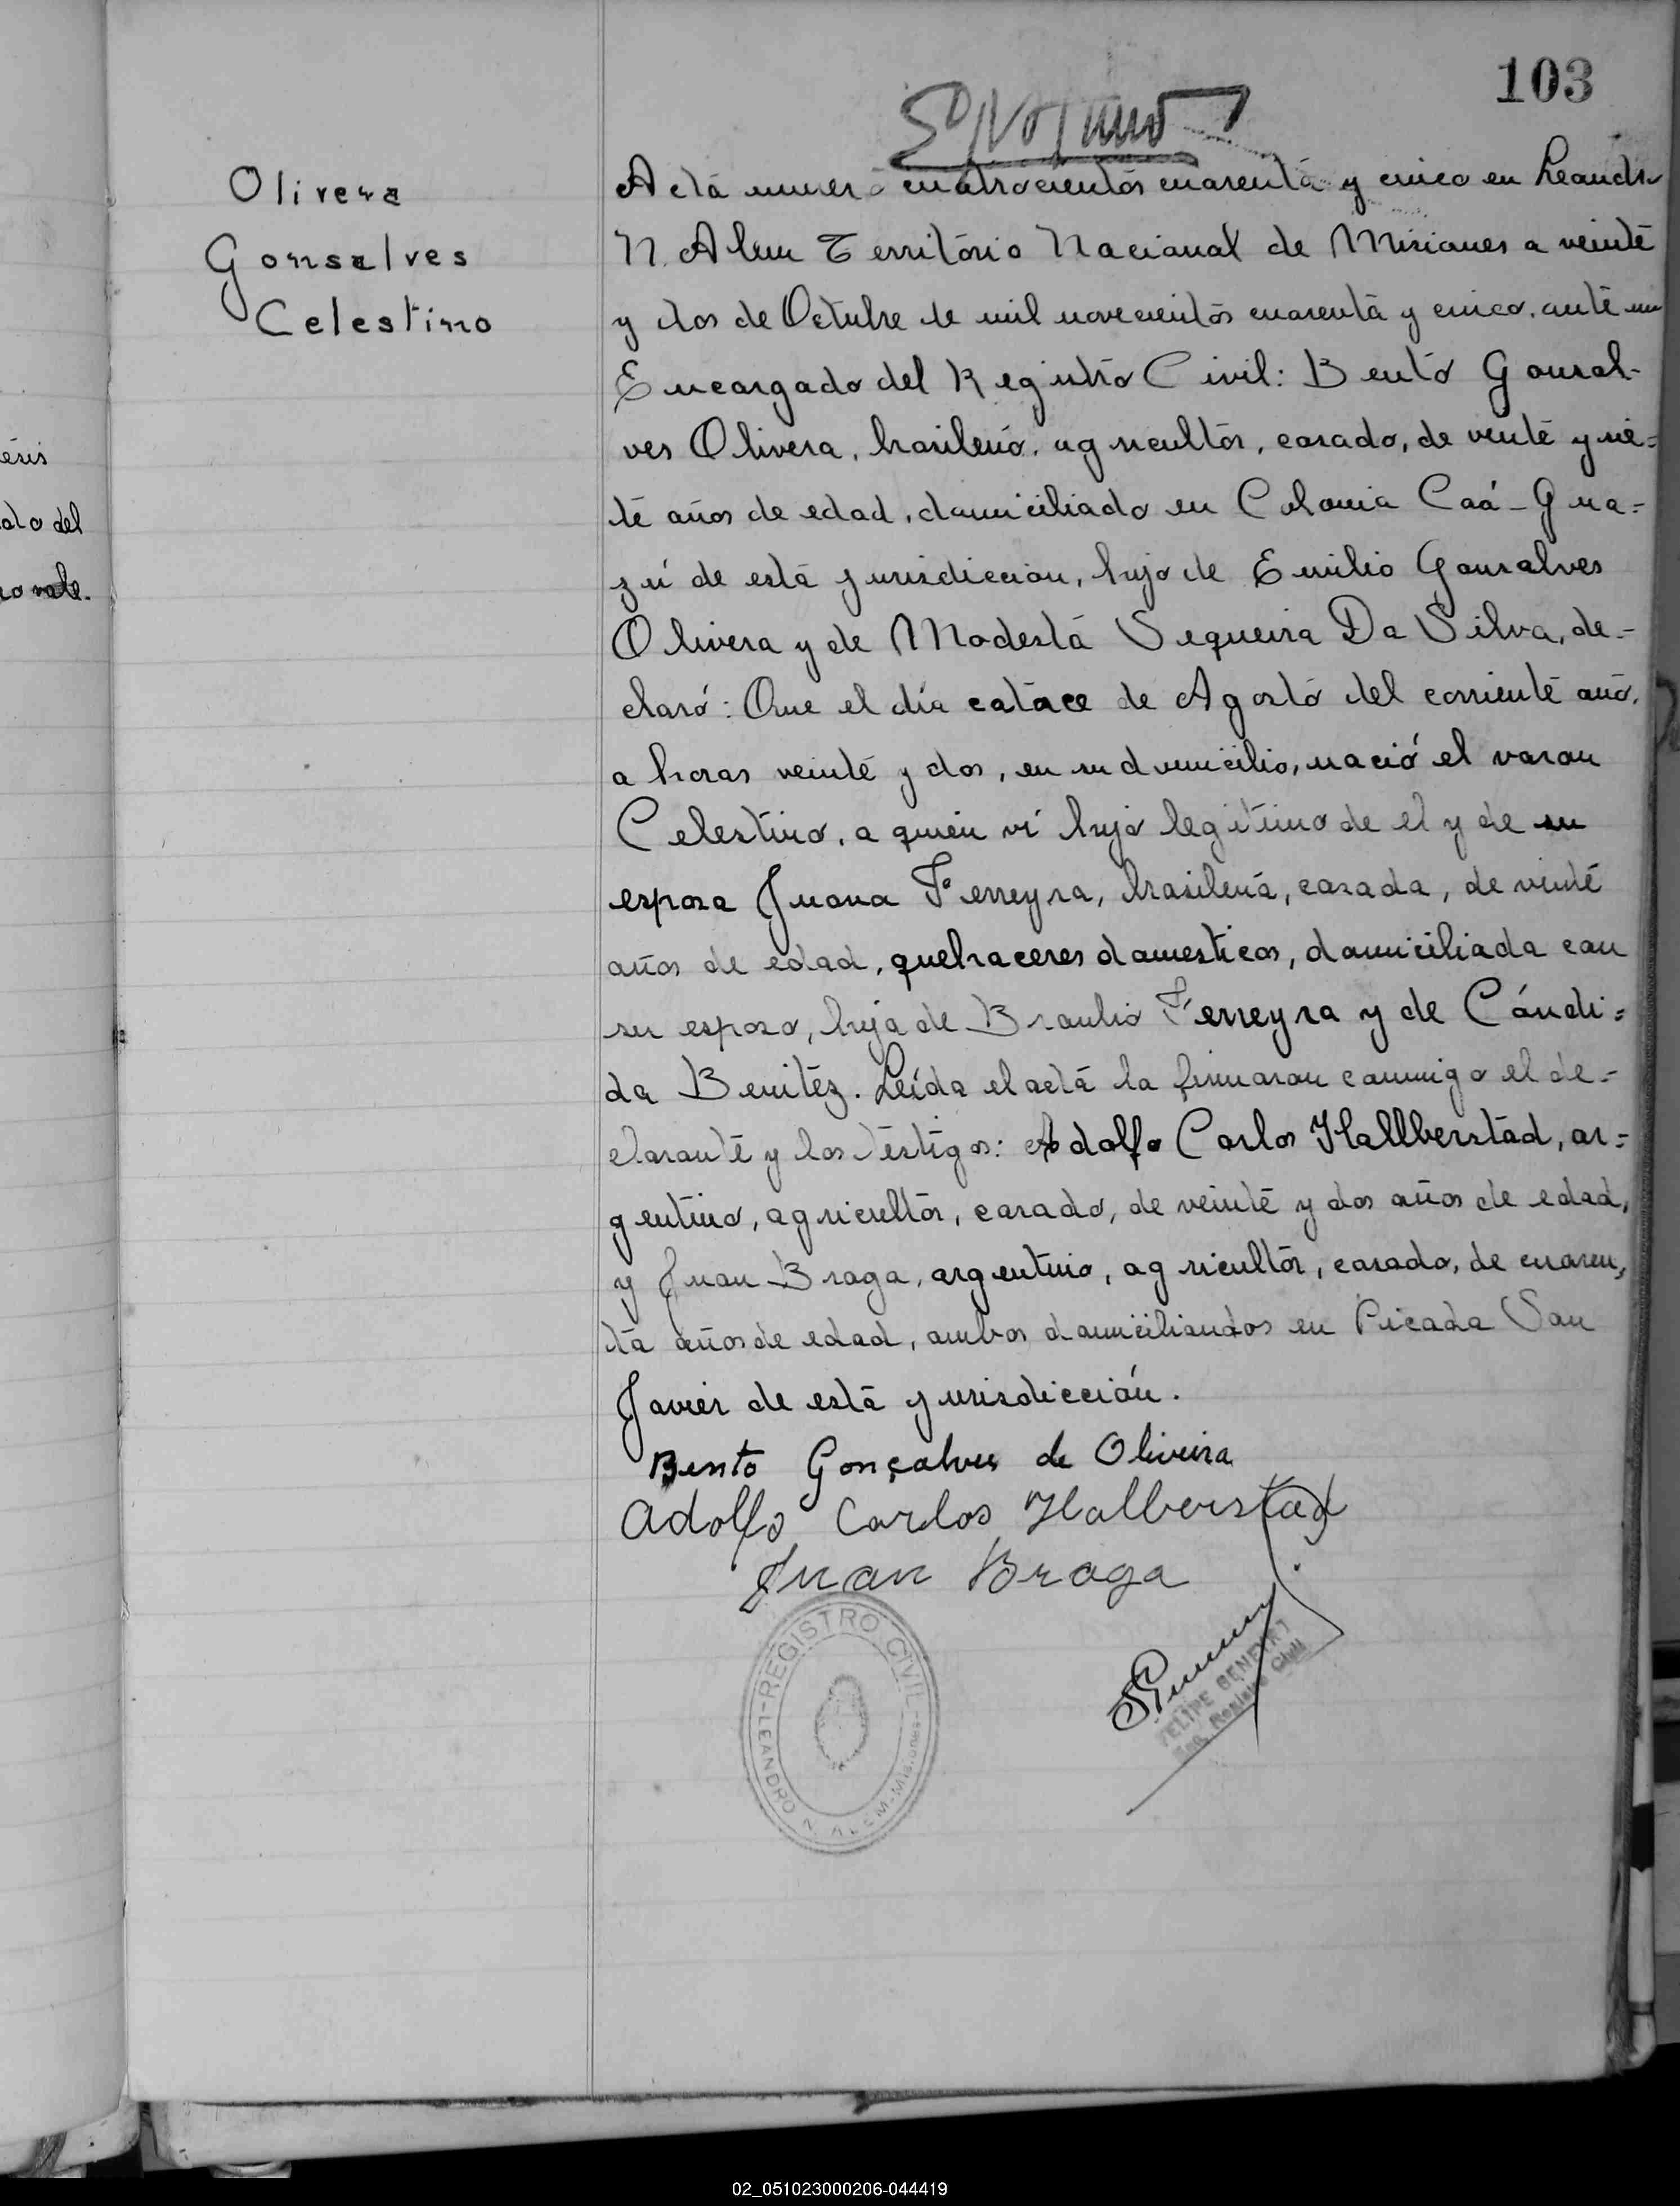 103
Olivera
Gonsalves
Celestino
éris
ato del
no vale.
Acta numero cuatrocientos cuarenta y cinco en Leandro
N. Alem Território Nacional de Misiones a veinte
y dos de Octubre de mil novecientos cuarenta y cinco, ante mi
Encargado del Registro Civil: Bento Gonsal-
ves Olivera, brasileño, agricultor, casado, de veinte y sie=
te años de edad, domiciliado en Colonia Caá-Gua=
zú de esta jurisdiccion, hijo de Emilio Gonsalves
Olivera y de Modesta Sequeira Da Silva, de-
claró: Que el día catorce de Agosto del corriente año,
a horas veinte y dos, en su domicilio, nació el varon
Celestino, a quien vi hijo legitimo de el y de su
esposa Juana Ferreyra, brasileña, casada, de veinte
años de edad, quehaceres domesticos, domiciliada con
su esposo, hija de Braulio Ferreyra y de Cándi=
da Benitez. Leída el acta la firmaron conmigo el de-
clarante y los testigos: Adolfo Carlos Hallberstad, ar=
gentino, agricultor, casado, de veinte y dos años de edad,
y Juan Braga, argentino, agricultor, casado, de cuaren,
ta años de edad, ambos domiciliandos en Picada San
Javier de esta jurisdicción.
Bento Gonçalves de Oliveira
Adolfo Carlos Halberstad
Juan Braga
REGISTRO CIVIL
LEANDRO N. ALEM - Misiones
FELIPE BENEDIT
Enc. Registro Civil
02_051023000206-044419